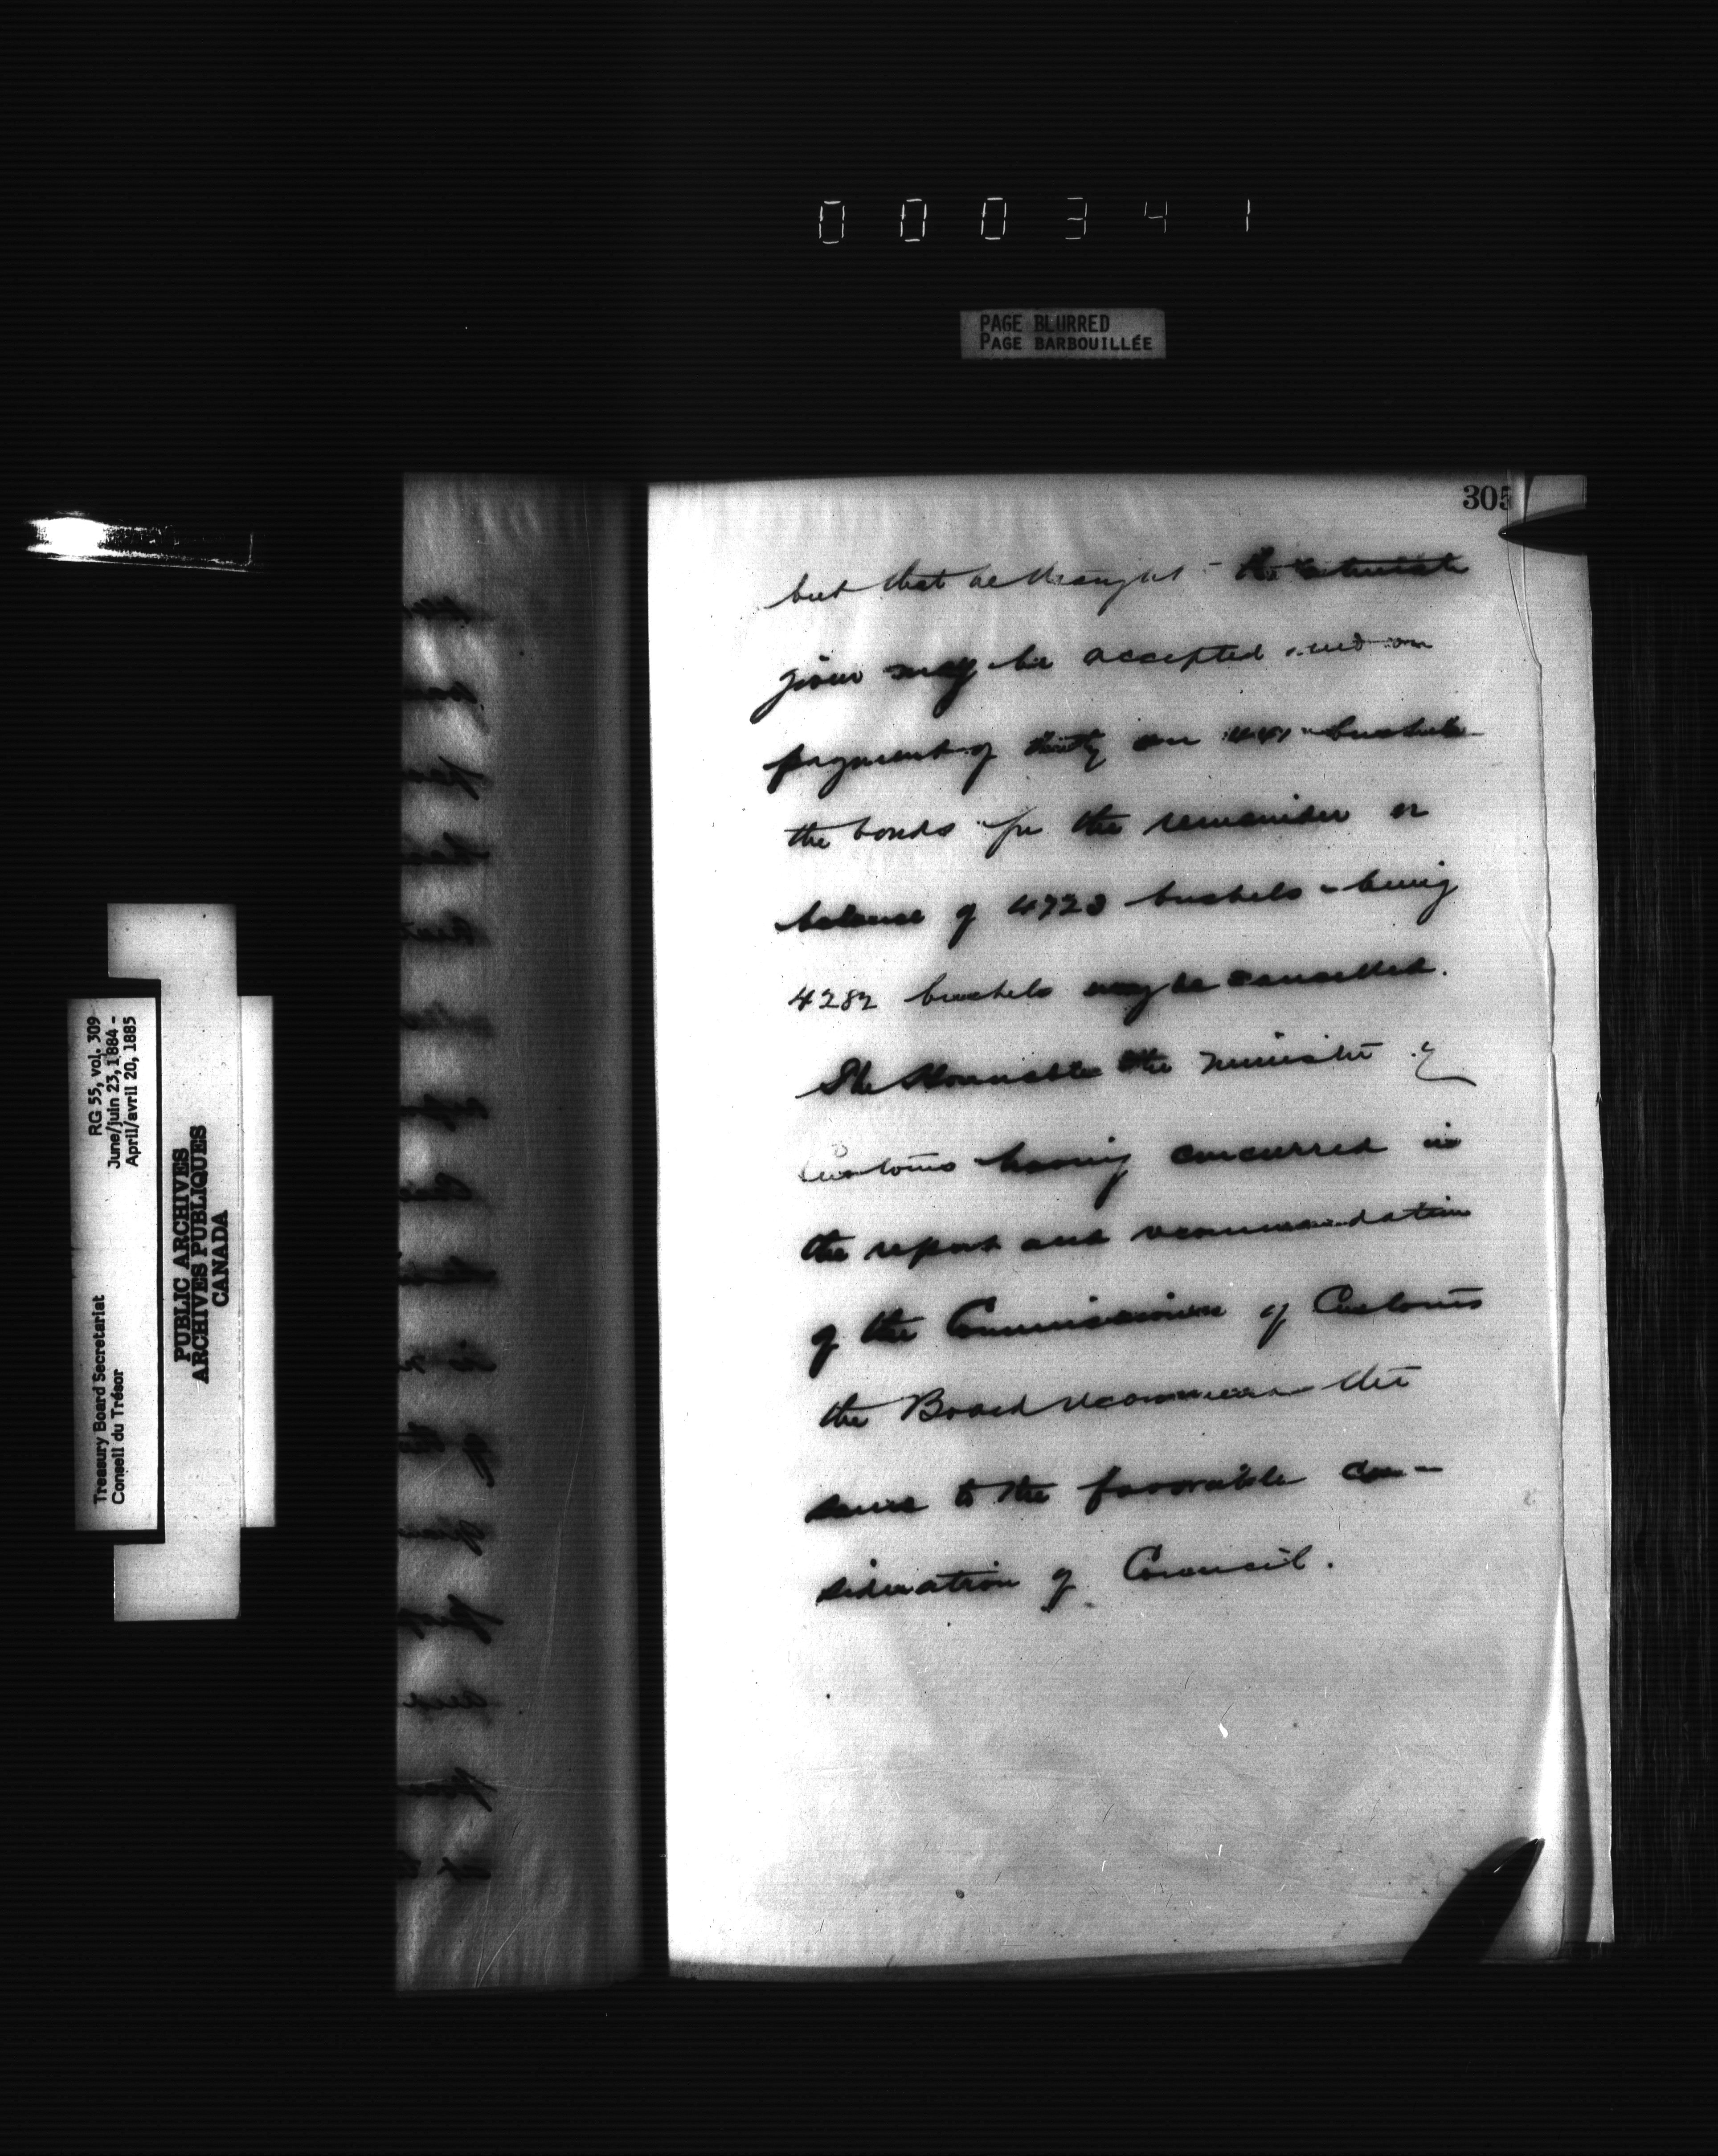 000341
PAGE BLURRED
PAGE BARBOUILLÉE
305
but that he thought the estimate
given may be accepted and on
payment of duty on 441 bushels
the bonds for the remainder or
balance of 4723 bushels being
4282 bushels may be cancelled.
The Honourable the Minister of
Customs having concurred in
the report and recommendation
of the Commissioner of Customs
the Board recommend the
same to the favorable con-
sideration of Council.
RG 55, vol. 309
June/juin 23, 1884 -
April/avril 20, 1885
Treasury Board Secretariat
Conseil du Trésor
PUBLIC ARCHIVES
ARCHIVES PUBLIQUES
CANADA